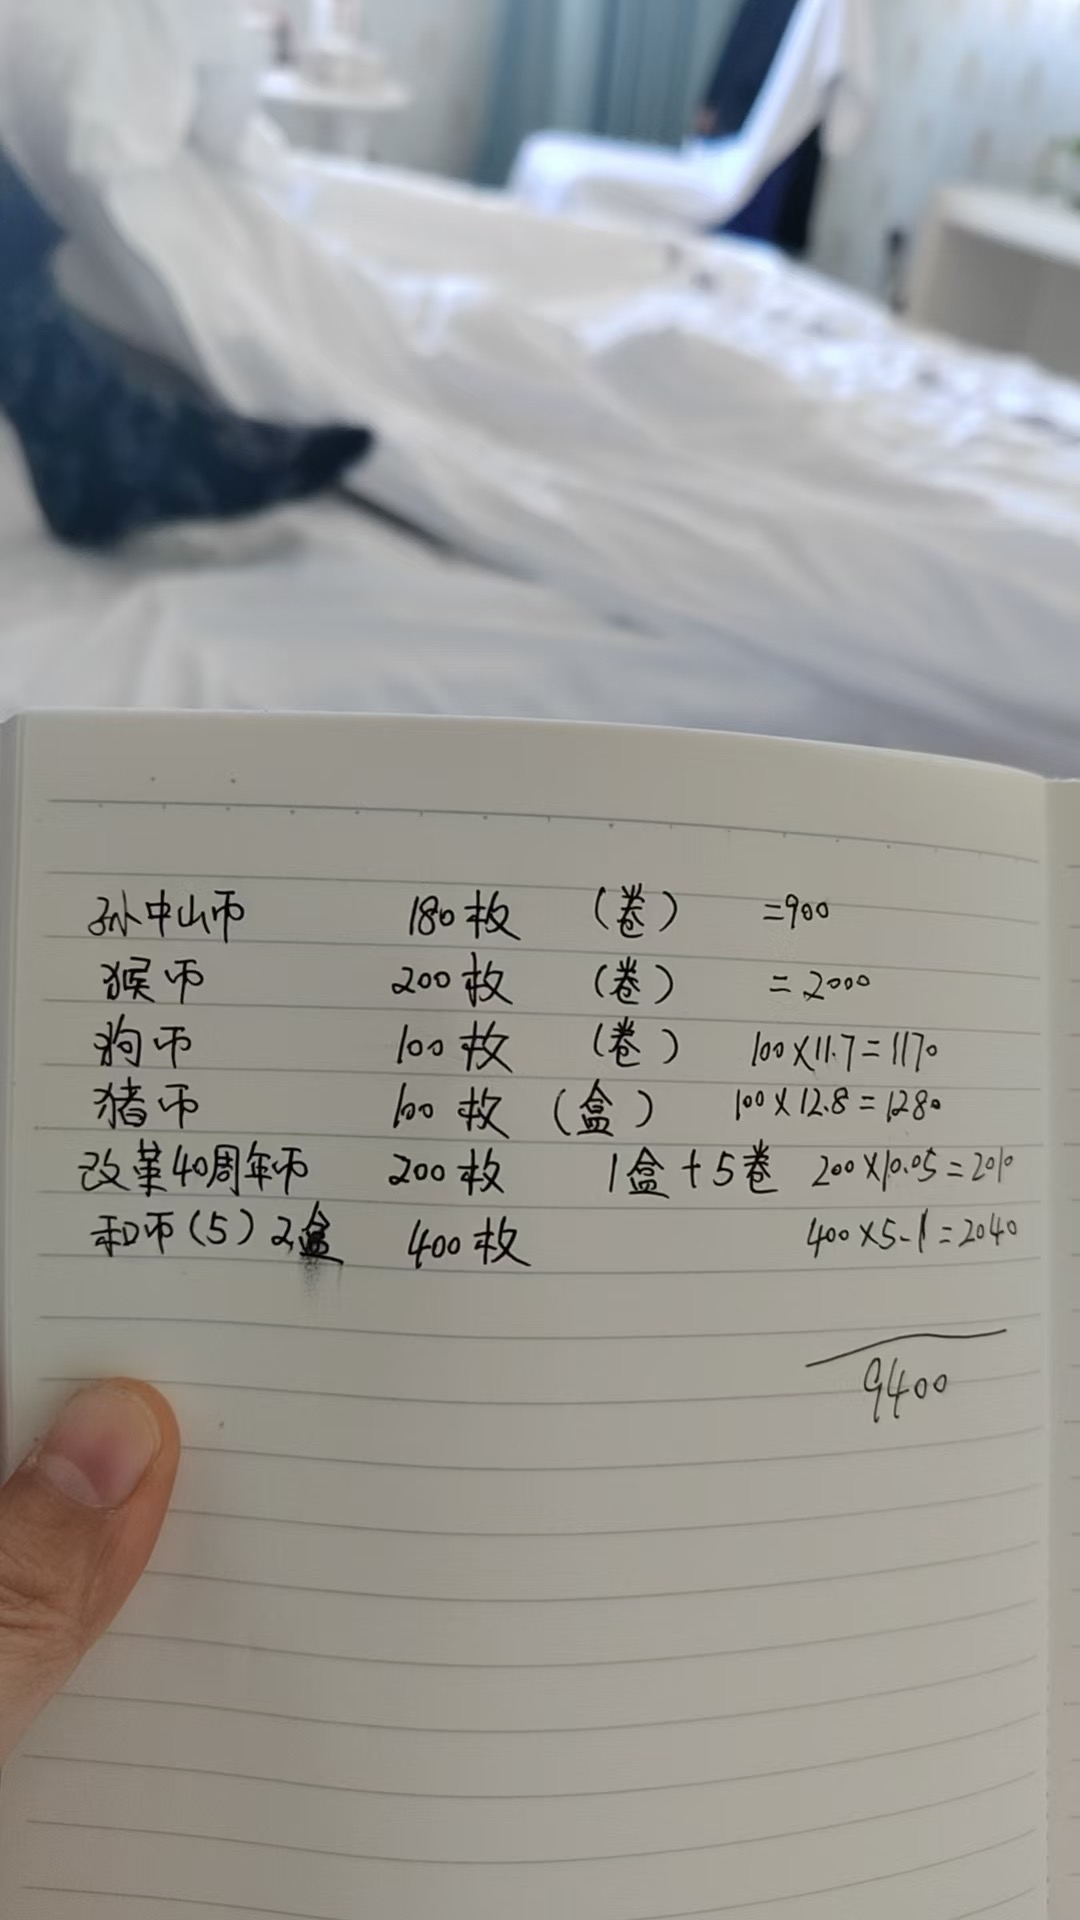 孙中山币 180枚 （卷） =900
猴币 200枚 （卷） =2000
狗币 100枚 （卷） 100×11.7=1170
猪币 100枚 （盒） 100×12.8=1280
改革40周年币 200枚 1盒+5卷 200×10.05=2010
和币（5）2盒 400枚 400×5.1=2040
9400